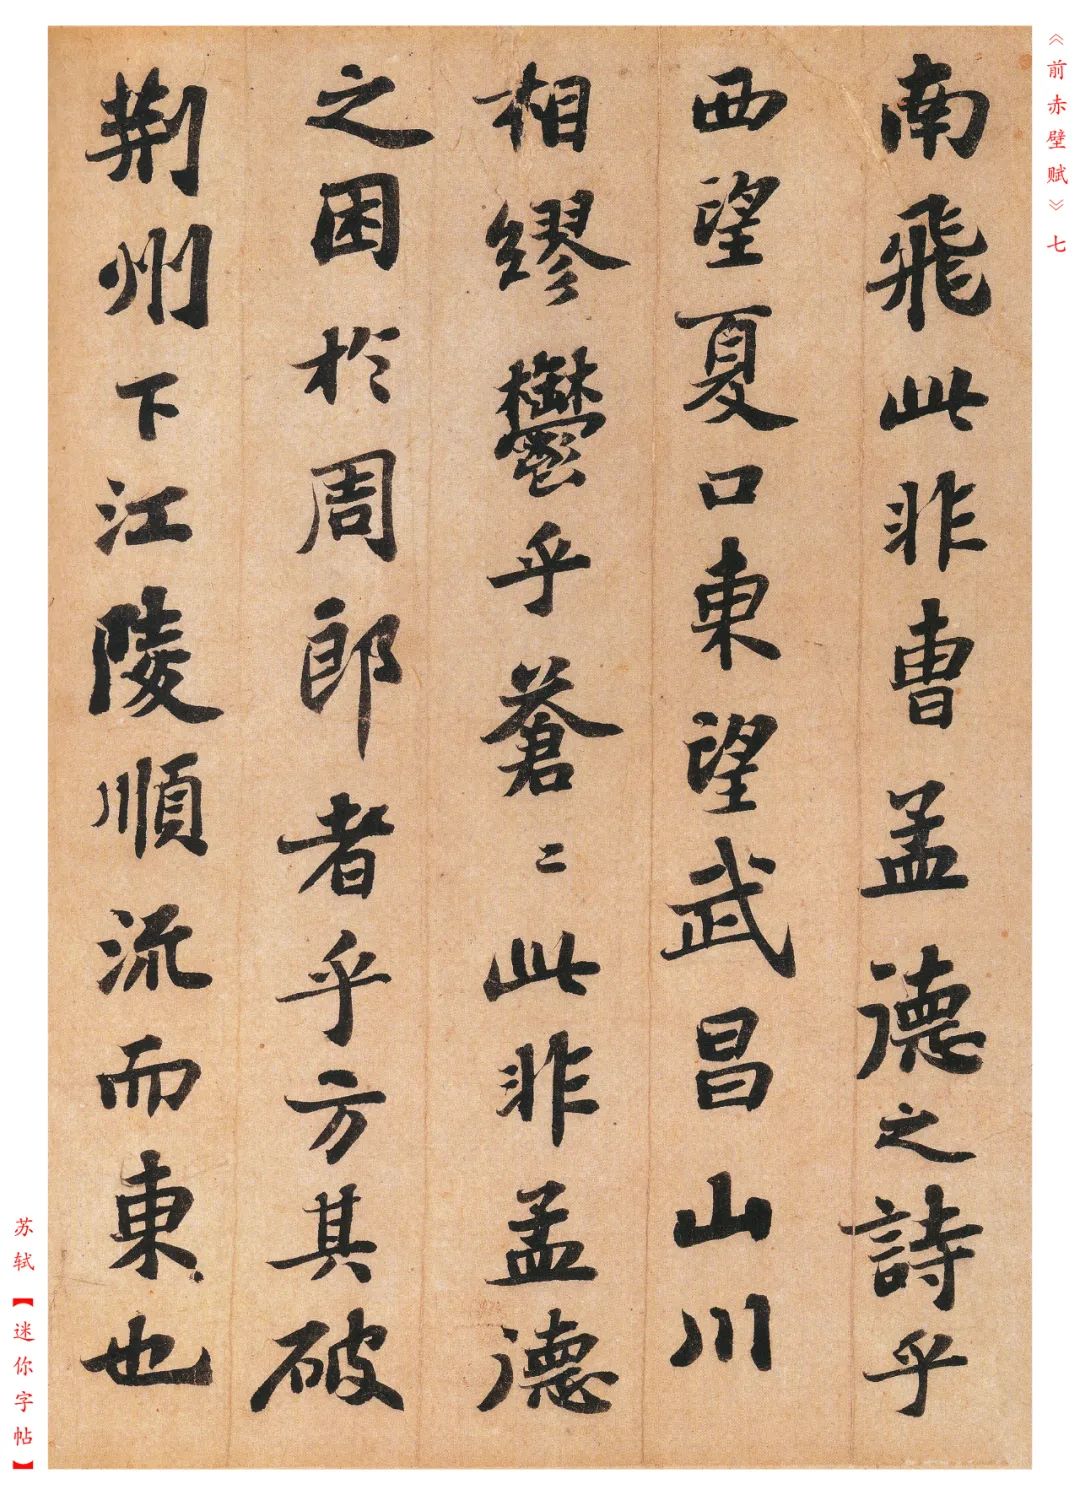 《前赤壁赋》七
南飛此非曹孟德之詩乎
西望夏口東望武昌山川
相繆鬱乎蒼〻此非孟德
之困於周郎者乎方其破
荆州下江陵順流而東也
苏轼【迷你字帖】